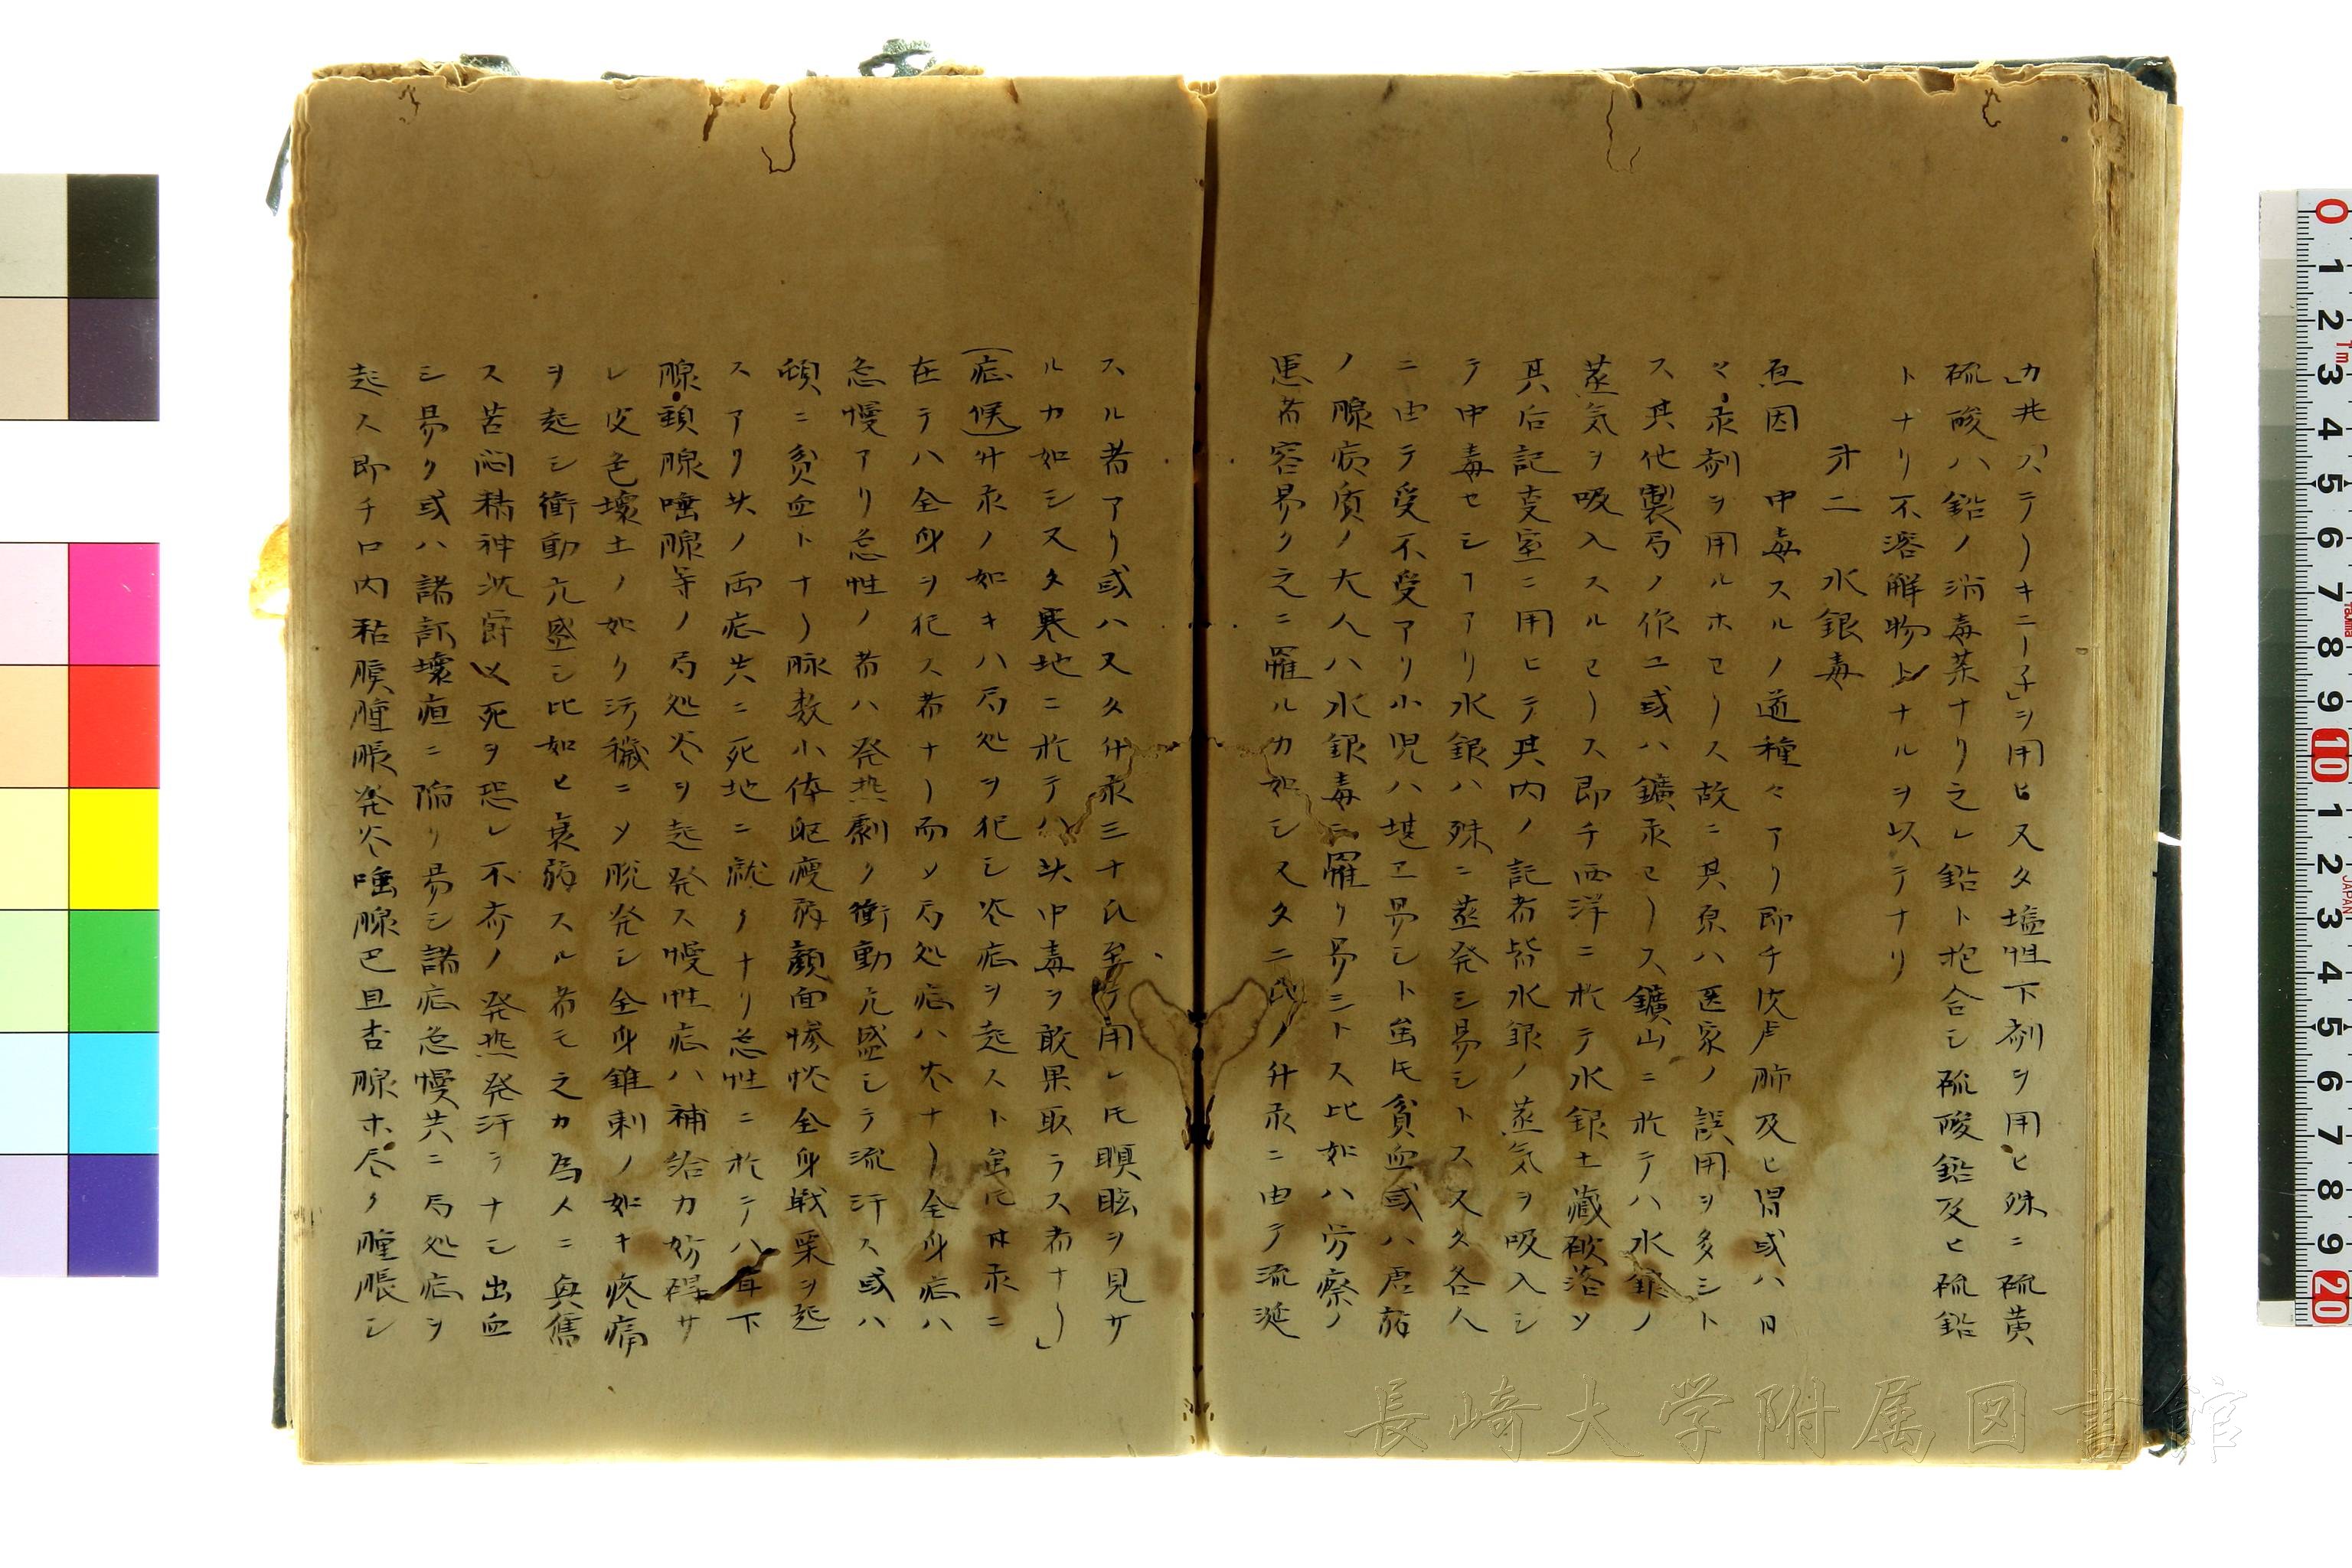 カ共「ステリキニー子」ヲ用ヒ又タ塩性下剤ヲ用ヒ殊ニ硫黄
硫酸ハ鉛ノ消毒薬ナリ之レ鉛ト抱合シ硫酸鉛及ヒ硫鉛
トナリ不溶解物トナルヲ以テナリ
才二 水銀毒
原因 中毒スルノ道種々アリ即チ皮膚肺及ヒ胃或ハ日
々汞剤ヲ用ルホヒ〵ス故ニ其原ハ医家ノ誤用ヲ多シト
ス其他製局ノ作工或ハ鑛汞ヒ〵ス鑛山ニ於テハ水銀ノ
蒸気ヲ吸入スルヒ〵ス即チ西洋ニ於テ水銀土蔵破落ソ
其后記支室ニ用ヒテ其内ノ記者皆水銀ノ蒸気ヲ吸入シ
テ中毒セシヿアリ水銀ハ殊ニ蒸発シ易シトス又タ各人
ニ由テ受不受アリ小児ハ堪エ易シト虽𪜈貧血或ハ虚弱
ノ腺病質ノ大人ハ水銀毒ニ罹リ易シトス比如ハ労瘵ノ
患者容易ク之ニ罹ルカ如シ又タ二氏ノ升汞ニ由テ流涎
スル者アリ或ハ又タ升汞三十氏至テ用レ𪜈瞑眩ヲ見サ
ルカ如シ又タ寒地ニ於テハ其中毒ヲ敢果取ラス者ナ〵」
(症候)升汞ノ如キハ局処ヲ犯シ炎症ヲ起スト虽𪜈甘汞ニ
在テハ全身ヲ犯ス者ナ〵而ソ局処症ハ炎ナ〵全身症ハ
急慢アリ急性ノ者ハ発熱劇ク衝動亢盛シテ流汗ス或ハ
頓ニ貧血トナ〵脉数小体躯痩弱顔面惨憺全身戦栗ヲ起
スアリ其ノ両症共ニ死地ニ就クナリ急性ニ於テハ耳下
腺頚腺唾腺等ノ局処炎ヲ起発ス慢性症ハ補給カ妨碍サ
レ皮色壊土ノ如ク汚穢ニソ脱発シ全身錐刺ノ如キ疼痛
ヲ起シ衝動亢盛シ比如ヒ衰弱スル者モ之カ為メニ興奮
ス苦悶精神沈欝メ死ヲ恐レ不斉ノ発熱発汗ヲナシ出血
シ易ク或ハ諸部壊疽ニ陥リ易シ諸症急慢共ニ局処症ヲ
起ス即チ口内粘膜腫脹発炎唾腺巴且杏腺ホ尽ク腫脹シ
長崎大学附属図書館